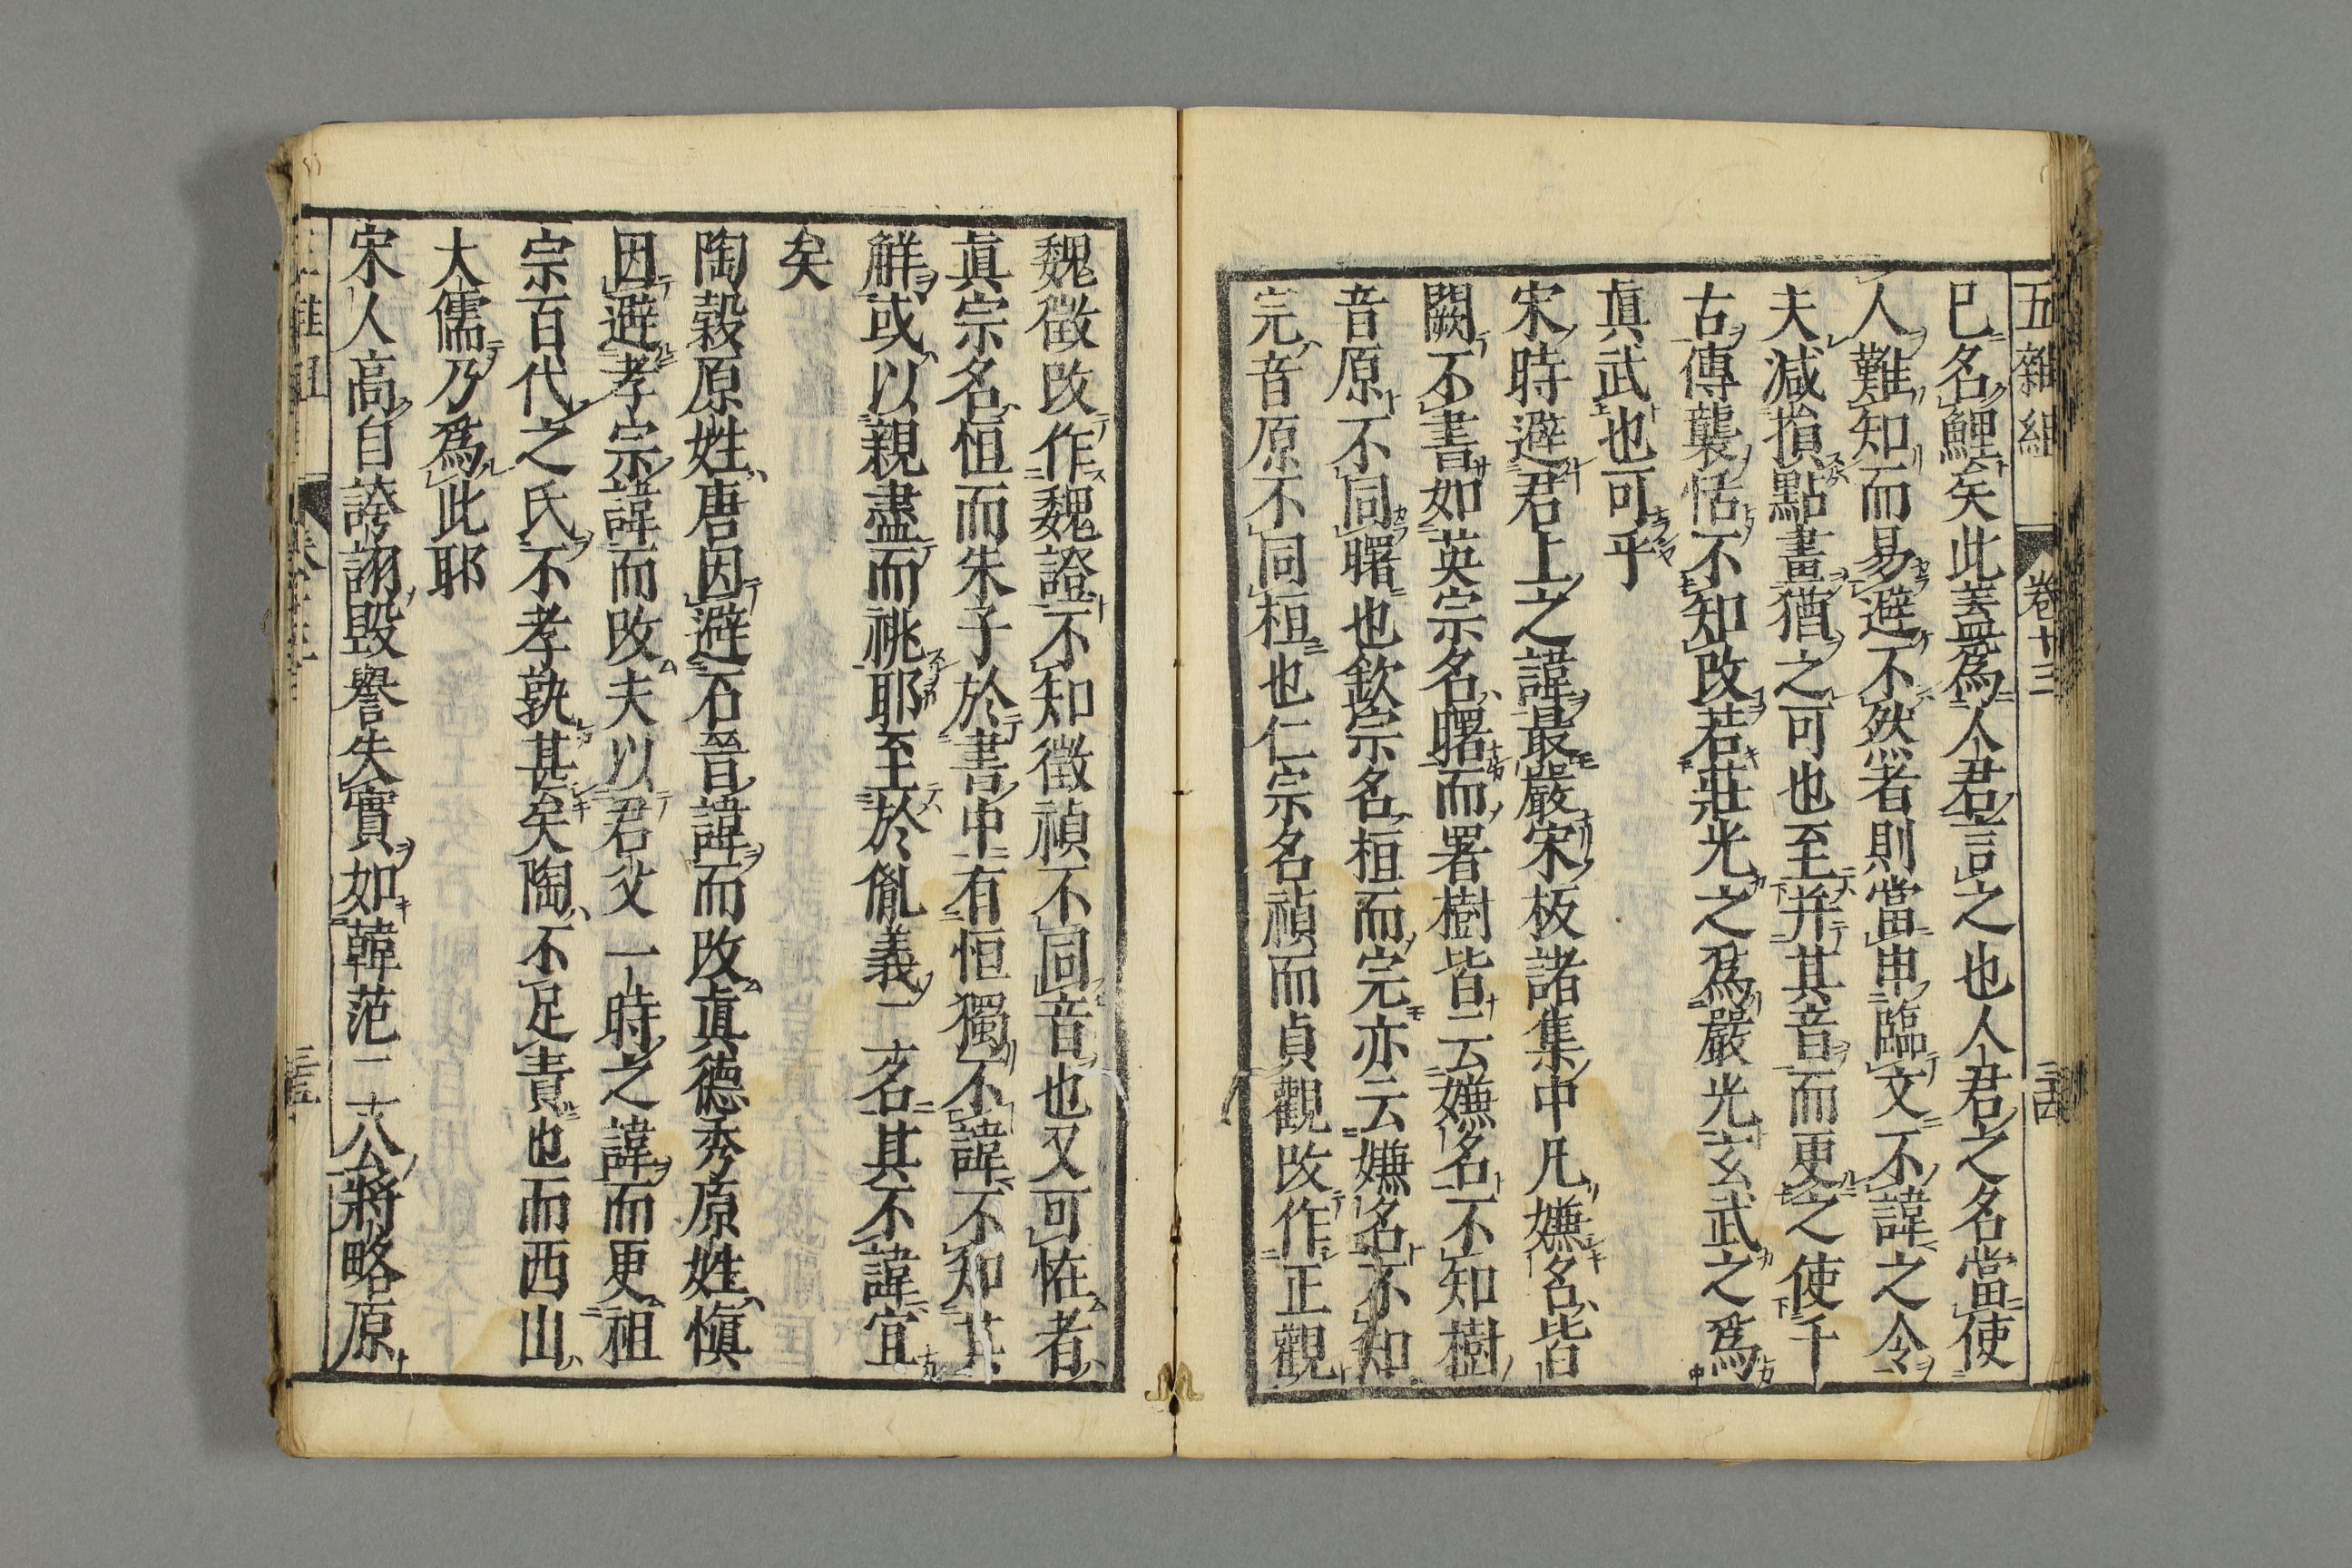 五雜組 卷十三
已名鯉矣此蓋爲人君言之也人君之名當使
人難知而易避不然者則當申臨文不諱之令
夫減損點畫猶之可也至并其音而更之使千
古傳襲恬不知改若莊光之爲嚴光玄武之爲
眞武也可乎
宋時避君上之諱最嚴宋板諸集中凡嫌名皆
闕不書如英宗名曙而署樹皆云嫌名不知樹
音原不同曙也欽宗名桓而完亦云嫌名不知
完音原不同桓也仁宗名禎而貞觀改作正觀
魏徵改作魏證不知徵禎不同音也又可恠者
眞宗名恒而朱子於書中有恒獨不諱不知其
解或以親盡而祧耶至於胤義二名其不諱宜
矣
陶穀原姓唐因避石晉諱而改眞德秀原姓愼
因避孝宗諱而改夫以君父一時之諱而更祖
宗百代之氏不孝孰甚矣陶不足責也而西山
大儒乃爲此耶
宋人高自誇詡毀譽失實如韓范二公將略原